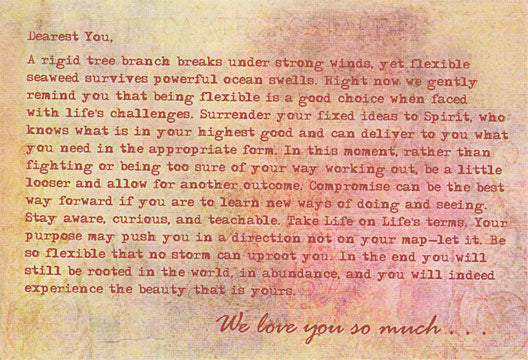 Dearest You,
A rigid tree branch breaks under strong winds, yet flexible
seaweed survives powerful ocean swells. Right now we gently
remind you that being flexible is a good choice when faced
with life's challenges. Surrender your fixed ideas to Spirit, who
knows what is in your highest good and can deliver to you what
you need in the appropriate form. In this moment, rather than
fighting or being too sure of your way working out, be a little
looser and allow for another outcome. Compromise can be the best
way forward if you are to learn new ways of doing and seeing.
Stay aware, curious, and teachable. Take Life on Life's terms. Your
purpose may push you in a direction not on your map—let it. Be
so flexible that no storm can uproot you. In the end you will
still be rooted in the world, in abundance, and you will indeed
experience the beauty that is yours.
We love you so much . . .